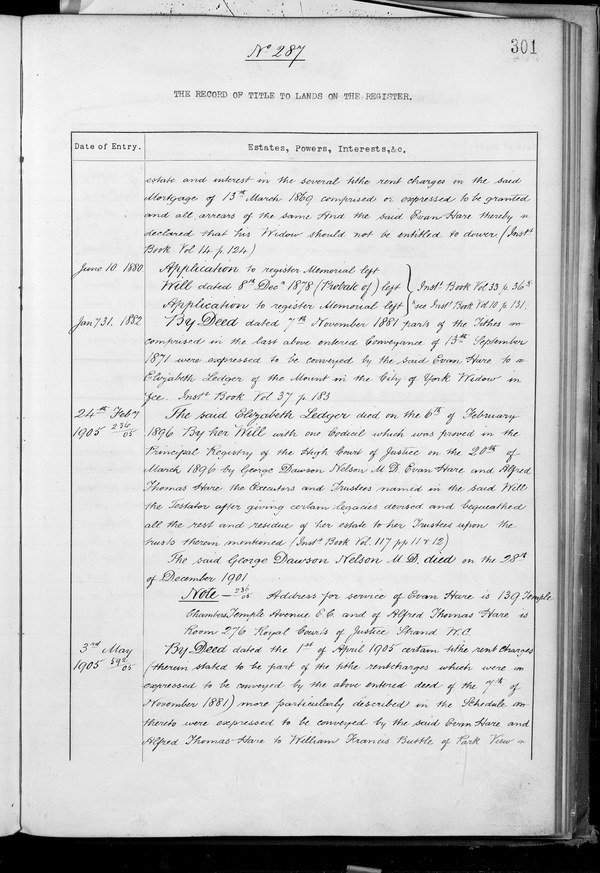 No 287
301
THE RECORD OF TITLE TO LANDS ON THE REGISTER.
Date of Entry.
Estates, Powers, Interests,&c.
estate and interest in the several tithe rent charges in the said
Mortgage of 13th March 1869 comprised or expressed to be granted
and all arrears of the same And the said Evan Hare thereby
declared that his Widow should not be entitled to dower (Inst
Book Vol 14. p. 124)
June 10. 1880. Application to register Memorial left
Will dated 8th Decr 1878 (Probate of) left } Inst. Book Vol 33. p. 36
Application to register Memorial left } see Inst. Book Vol. 10. p. 131.
Jany 31. 1882 By Deed dated 7th November 1881 parts of the Tithes
comprised in the last above entered Conveyance of 13th September
1871 were expressed to be conveyed by the said Evan Hare to
Elizabeth Ledger of the Mount in the City of York Widow in
fee. Inst Book Vol 37 p. 183
24th Feby The said Elizabeth Ledger died on the 6th of February
1905 236/05 1896 By her Will with one Codicil which was proved in the
Principal Registry of the High Court of Justice on the 20th of
March 1896 by George Dawson Nelson M. D. Evan Hare and Alfred
Thomas Hare the Executors and Trustees named in the said Will
the Testator after giving certain legacies devised and bequeathed
all the rest and residue of her estate to her Trustees upon the
trusts therein mentioned (Inst Book Vol. 117 pp 11 & 12)
The said George Dawson Nelson M. D. died on the 28th
of December 1901
Note – 236/05 Address for service of Evan Hare is 139 Temple
Chambers, Temple Avenue E.C. and of Alfred Thomas Hare is
Room 276 Royal Courts of Justice Strand W.C.
3rd May By Deed dated the 1st of April 1905 certain tithe rent charges
1905 592/05 (therein stated to be part of the tithe rentcharges which were
expressed to be conveyed by the above entered deed of the 7th of
November 1881) more particularly described in the Schedule
thereto were expressed to be conveyed by the said Evan Hare and
Alfred Thomas Hare to William Francis Buttle of Park View